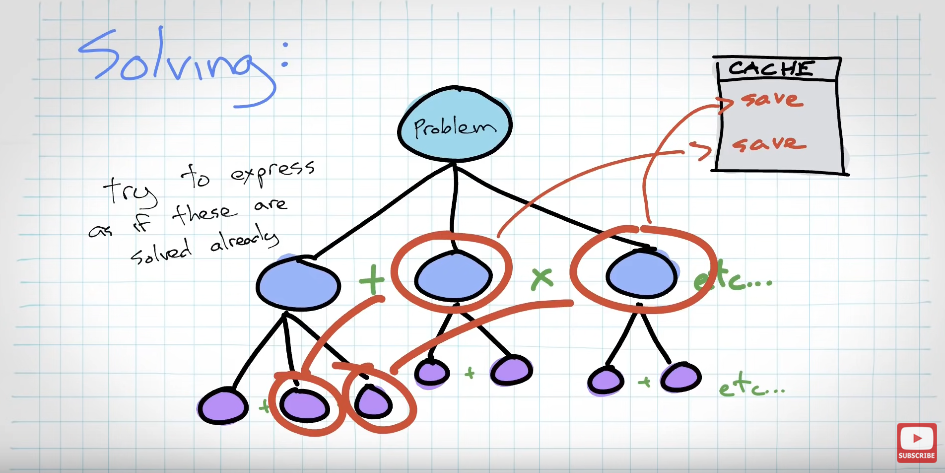 Solving:
CACHE
save
save
Problem
try to express
as if these are
solved already
+
x
etc...
+
+
+
etc...
SUBSCRIBE